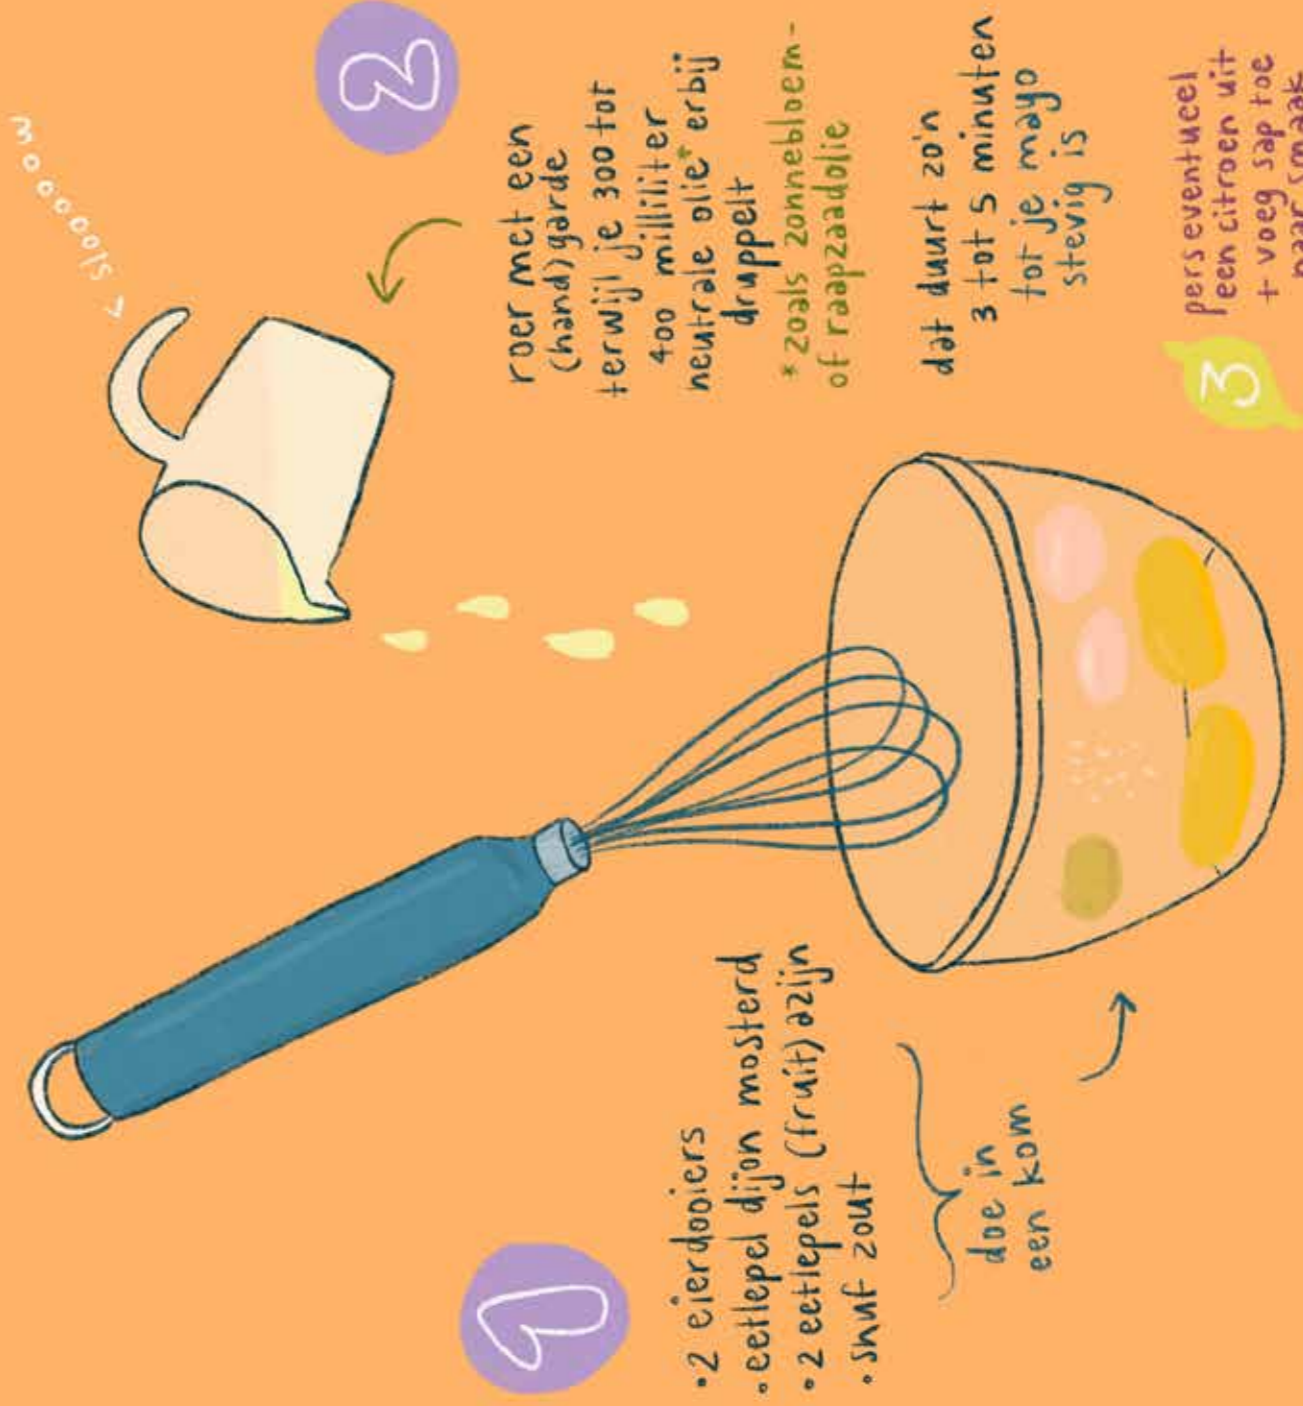 1
•2 eierdooiers
•eetlepel dijon mosterd
•2 eetlepels (fruit)azijn
•snuf zout
doe in
een kom
2
< slooooom
roer met een
(hand)garde
terwijl je 300 tot
400 milliliter
neutrale olie* erbij
druppelt
* zoals zonnebloem-
of raapzaadolie
dat duurt zo'n
3 tot 5 minuten
tot je mayo
stevig is
3
pers eventueel
een citroen uit
+ voeg sap toe
naar smaak